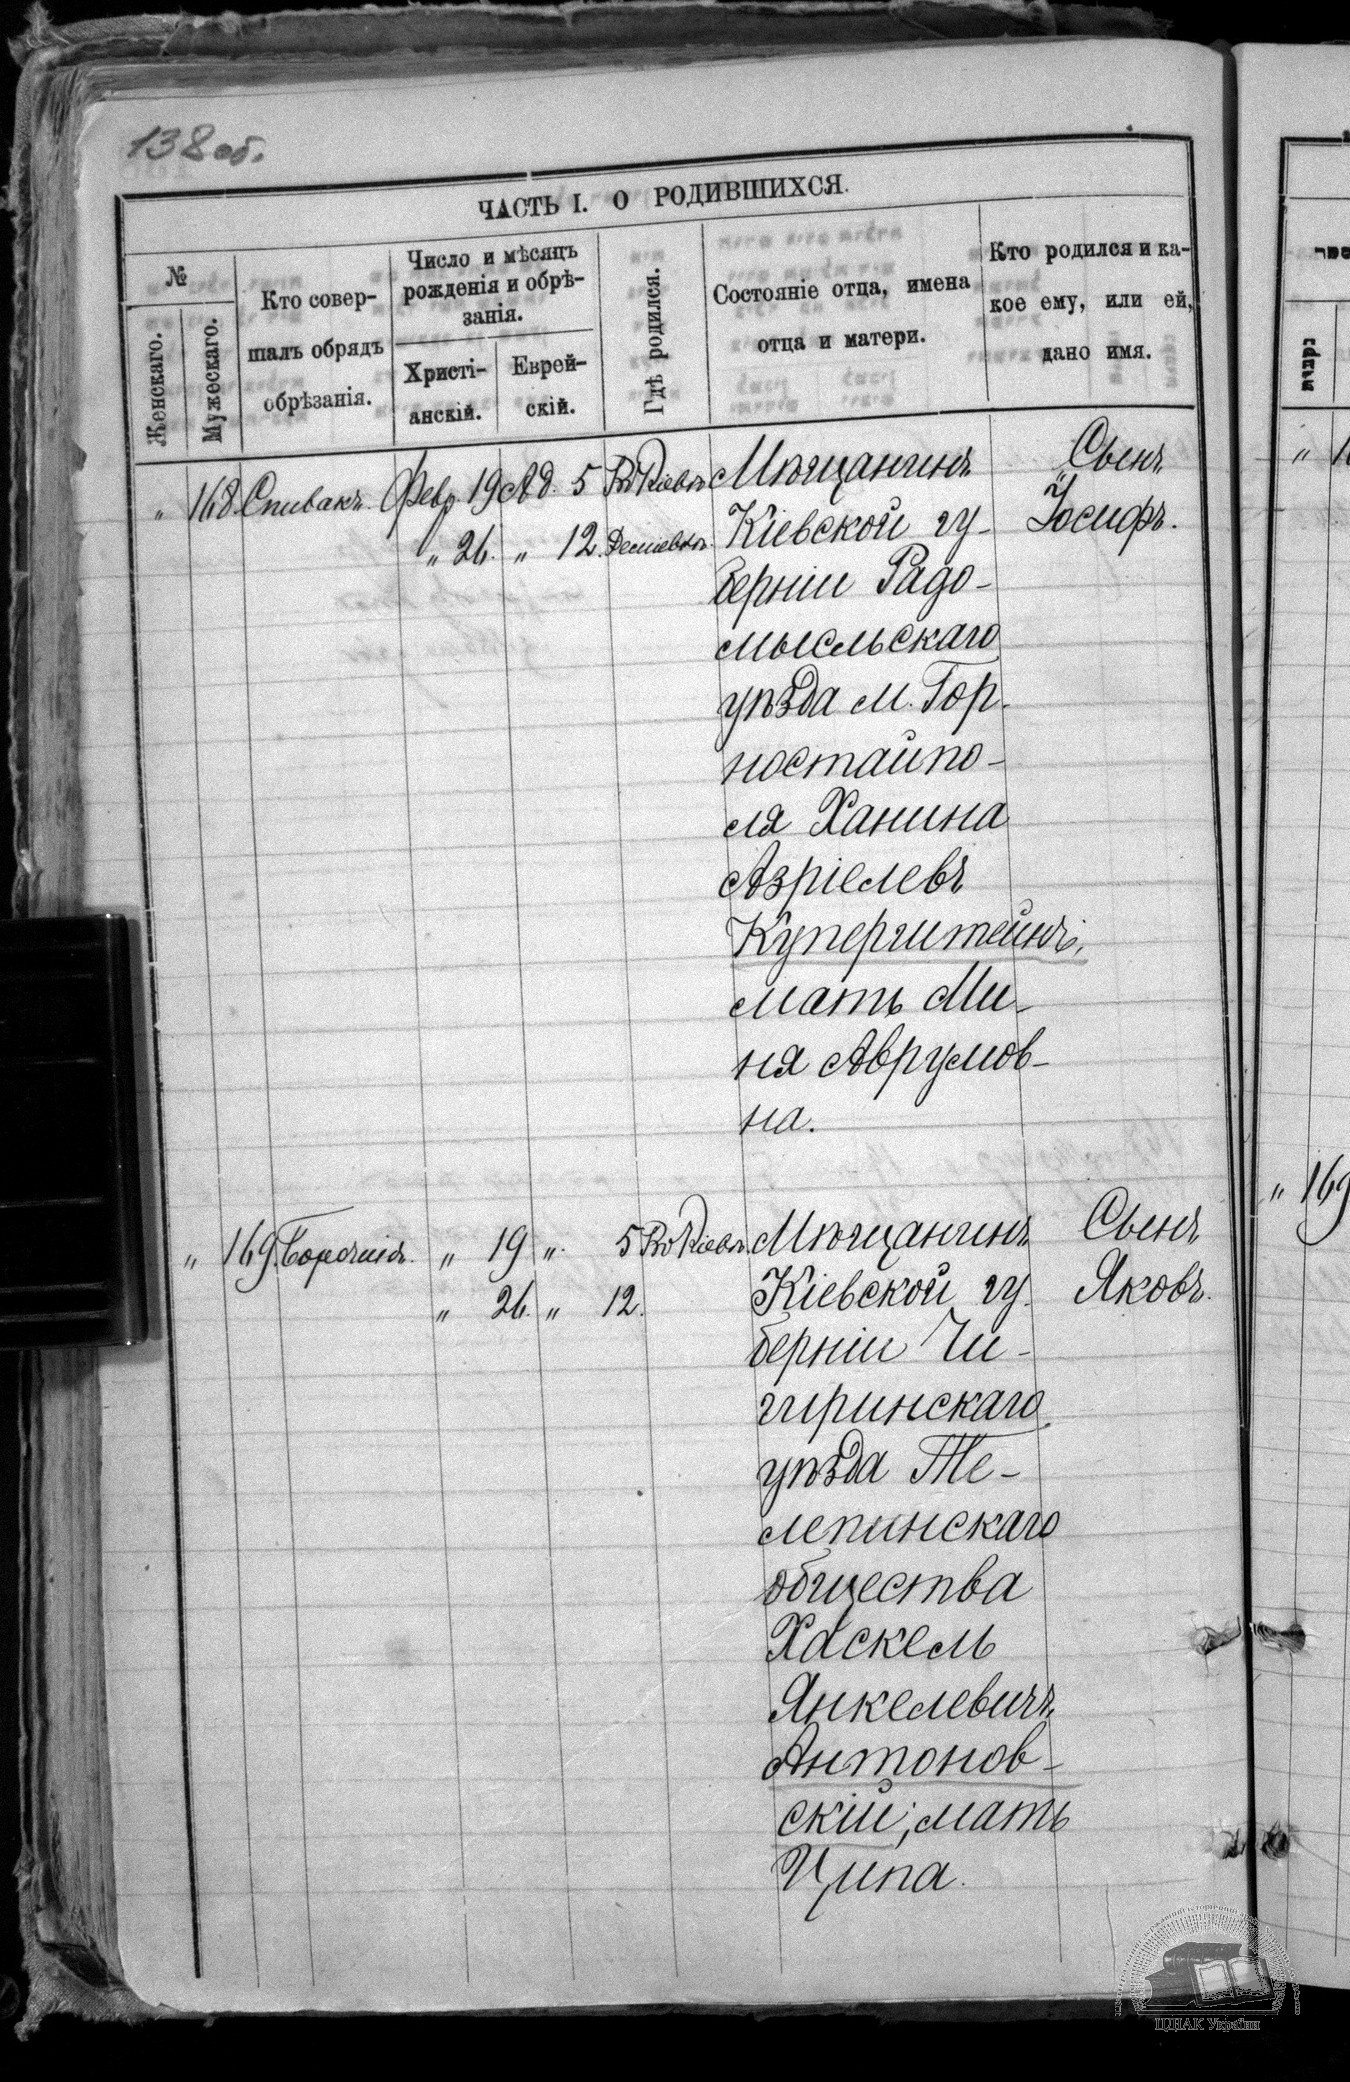 138 об.
ЧАСТЬ I. О РОДИВШИХСЯ.
№
Женскаго.
Мужескаго.
Кто совер-
шалъ обрядъ
обрѣзанія.
Число и мѣсяцъ
рожденія и обрѣ-
занія.
Христі-
анскій.
Еврей-
скій.
Гдѣ родился.
Состояніе отца, имена
отца и матери.
Кто родился и ка-
кое ему, или ей,
дано имя.
" 168. Спивакъ. Февр. 19 Ад. 5 Въ Кіевѣ
" 26. " 12. Деміевкѣ.
Мѣщанинъ
Кіевской гу-
берніи Радо-
мысльскаго
уѣзда м. Гор-
ностайпо-
ля Ханина
Азріелевъ
Куперштейнъ,
мать Ми-
ня Аврумов-
на.
Сынъ
Іосифъ.
" 169. " 19 " 5 Въ Кіевѣ.
" 26. " 12.
Мѣщанинъ
Кіевской гу-
берніи Чи-
гиринскаго
уѣзда Те-
лепинскаго
общества
Хаскель
Янкелевичъ
Антонов-
скій, мать
Ципа.
Сынъ
Яковъ.
" 169
ЦДІАК України